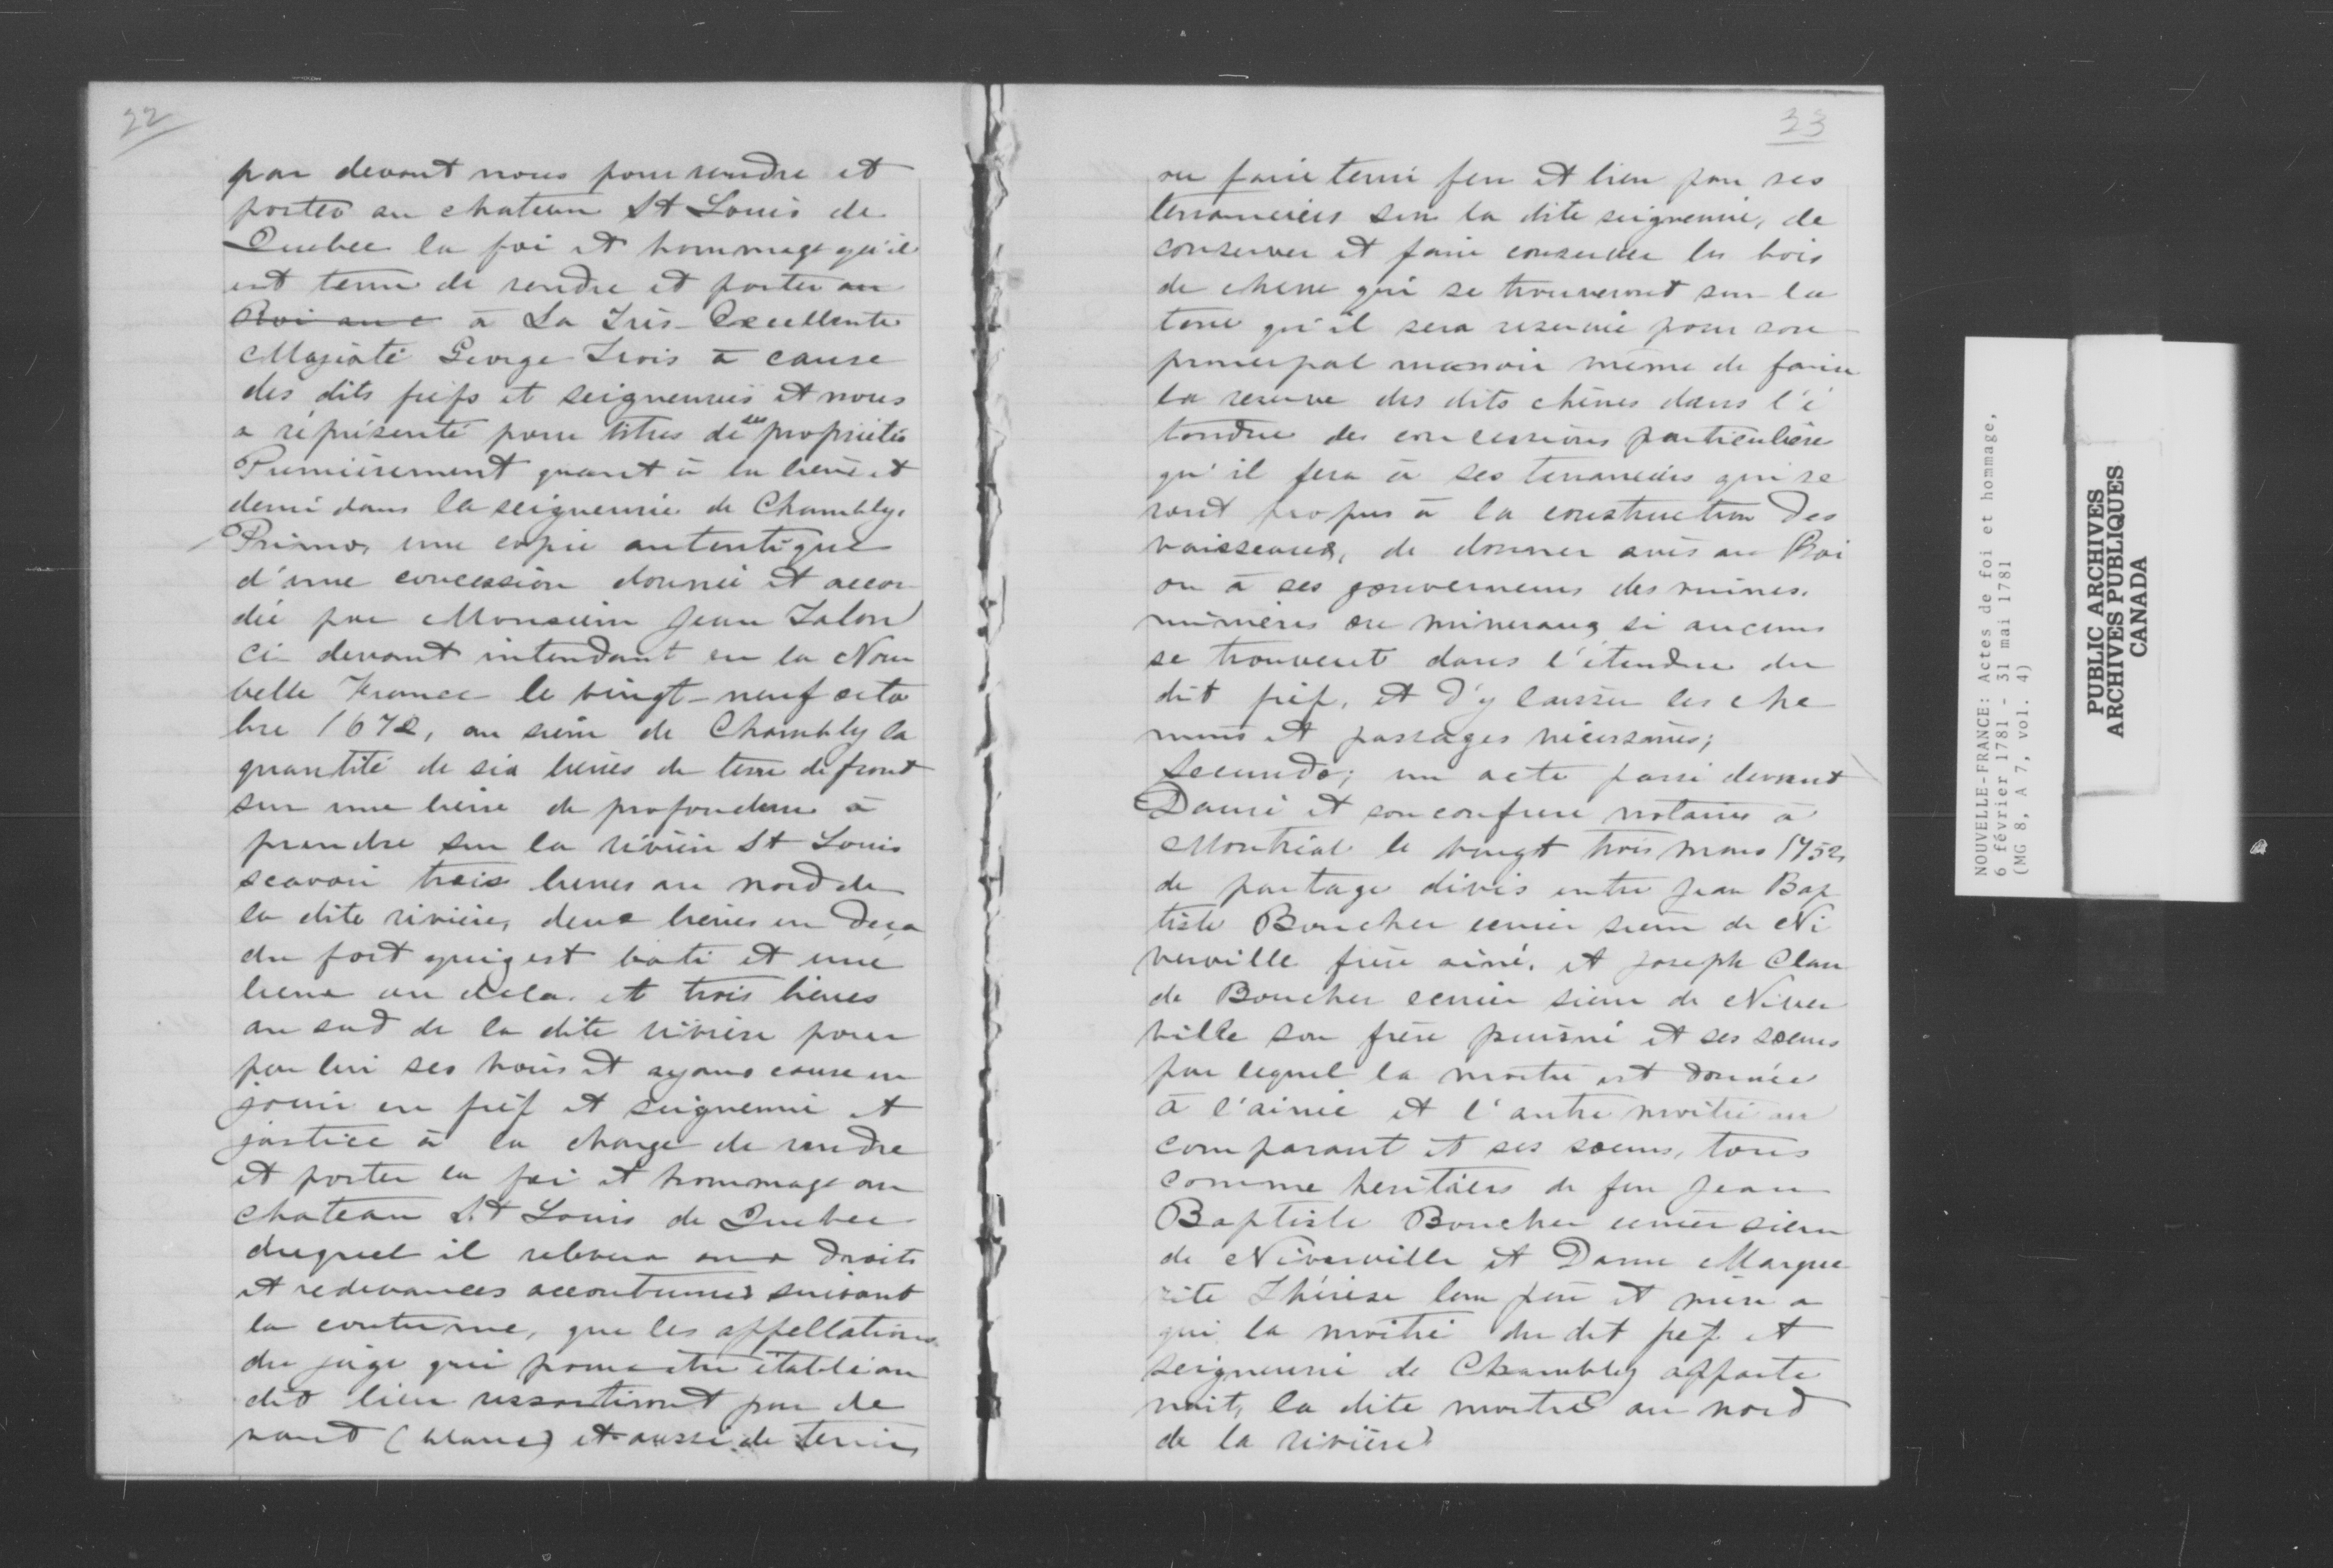 22
par devant nous pour rendre et
porter au chateau St Louis de
Quebec la foi et hommage qu'il
est tenu de rendre et porter au
Roi au c à La Très-Excellente
Majesté George Trois à cause
des dits fiefs et seigneuries et nous
a réprésenté pour titres de ses propriétés
Premièrement quant à la lieue et
demi dans la seigneurie de Chambly.
Primo, une copie autentique
d'une concession donnée et accor
dée par Monsieur Jean Talon
ci-devant intendant en la Nou
velle France le vingt-neuf octo
bre 1672, au sieur de Chambly la
quantité de six lieues de terre de front
sur une lieue de profondeur à
prendre sur la rivière St Louis
scavoir trois lieues au nord de
la dite rivière, deux lieues en deça
du fort qui y est bati et une
lieue au dela. et trois lieues
au sud de la dite rivière pour
par lui ses hoirs et ayans cause en
jouir en fief et seigneurie et
justice à la charge de rendre
et porter la foi et hommage au
chateau St Louis de Quebec
duquel il relevera aux droits
et redevances accoutumés suivant
la coutume, que les appellations
du juge qui pourra etre établi au
dit lieu ressortiront par de
vant (blanc) et aussi de tenir
23
ou faire tenir feu et lieu par ses
tenanciers sur la dite seigneurie, de
conserver et faire conserver les bois
de chene qui se trouveront sur la
terre qu'il sera reservée pour son
principal manoir même de faire
la reserve des dits chênes dans l'é
tendue des concessions particulière
qu'il fera à ses tenanciers qui se
ront propres à la construction des
vaisseaux, de donner avis au Roi
ou à ses gouverneurs des mines.
minières ou mineraux si aucuns
se trouvent dans l'étendue du
dit fief, et d'y laisser les che
mins et passages nécessaires;
Secundo; un acte passé devant
Danré et son confrere notaires à
Montréal le vingt trois mars 1752,
de partage divis entre Jean Bap
tiste Boucher ecuier sieur de Ni
verville frère ainé. et Joseph Clau
de Boucher ecuier sieur de Niver
ville son frère puisné et ses soeurs
par lequel la moitié est donnée
à l'ainée et l'autre moitié au
comparant et ses soeurs, tous
comme heritiers de feu Jean
Baptiste Boucher ecuier sieur
de Niverville et Dame Margue
rite Thérèse leur père et mère a
qui la moitié du dit fief et
seigneurie de Chambly apparte
noit, la dite moitié au nord
de la rivière
NOUVELLE-FRANCE: Actes de foi et hommage,
6 février 1781 - 31 mai 1781
(MG 8, A 7, vol. 4)
PUBLIC ARCHIVES
ARCHIVES PUBLIQUES
CANADA